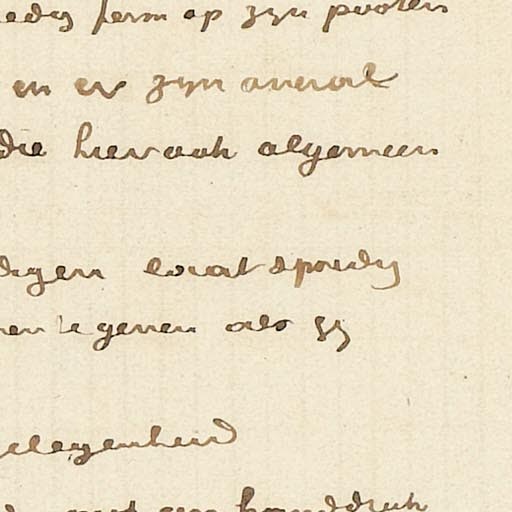 ferm op zyn pooten
en er zyn overal
die hiervook algemeen
digen wat spoedig
te geven als gy
gelegenheid
met een handdruk